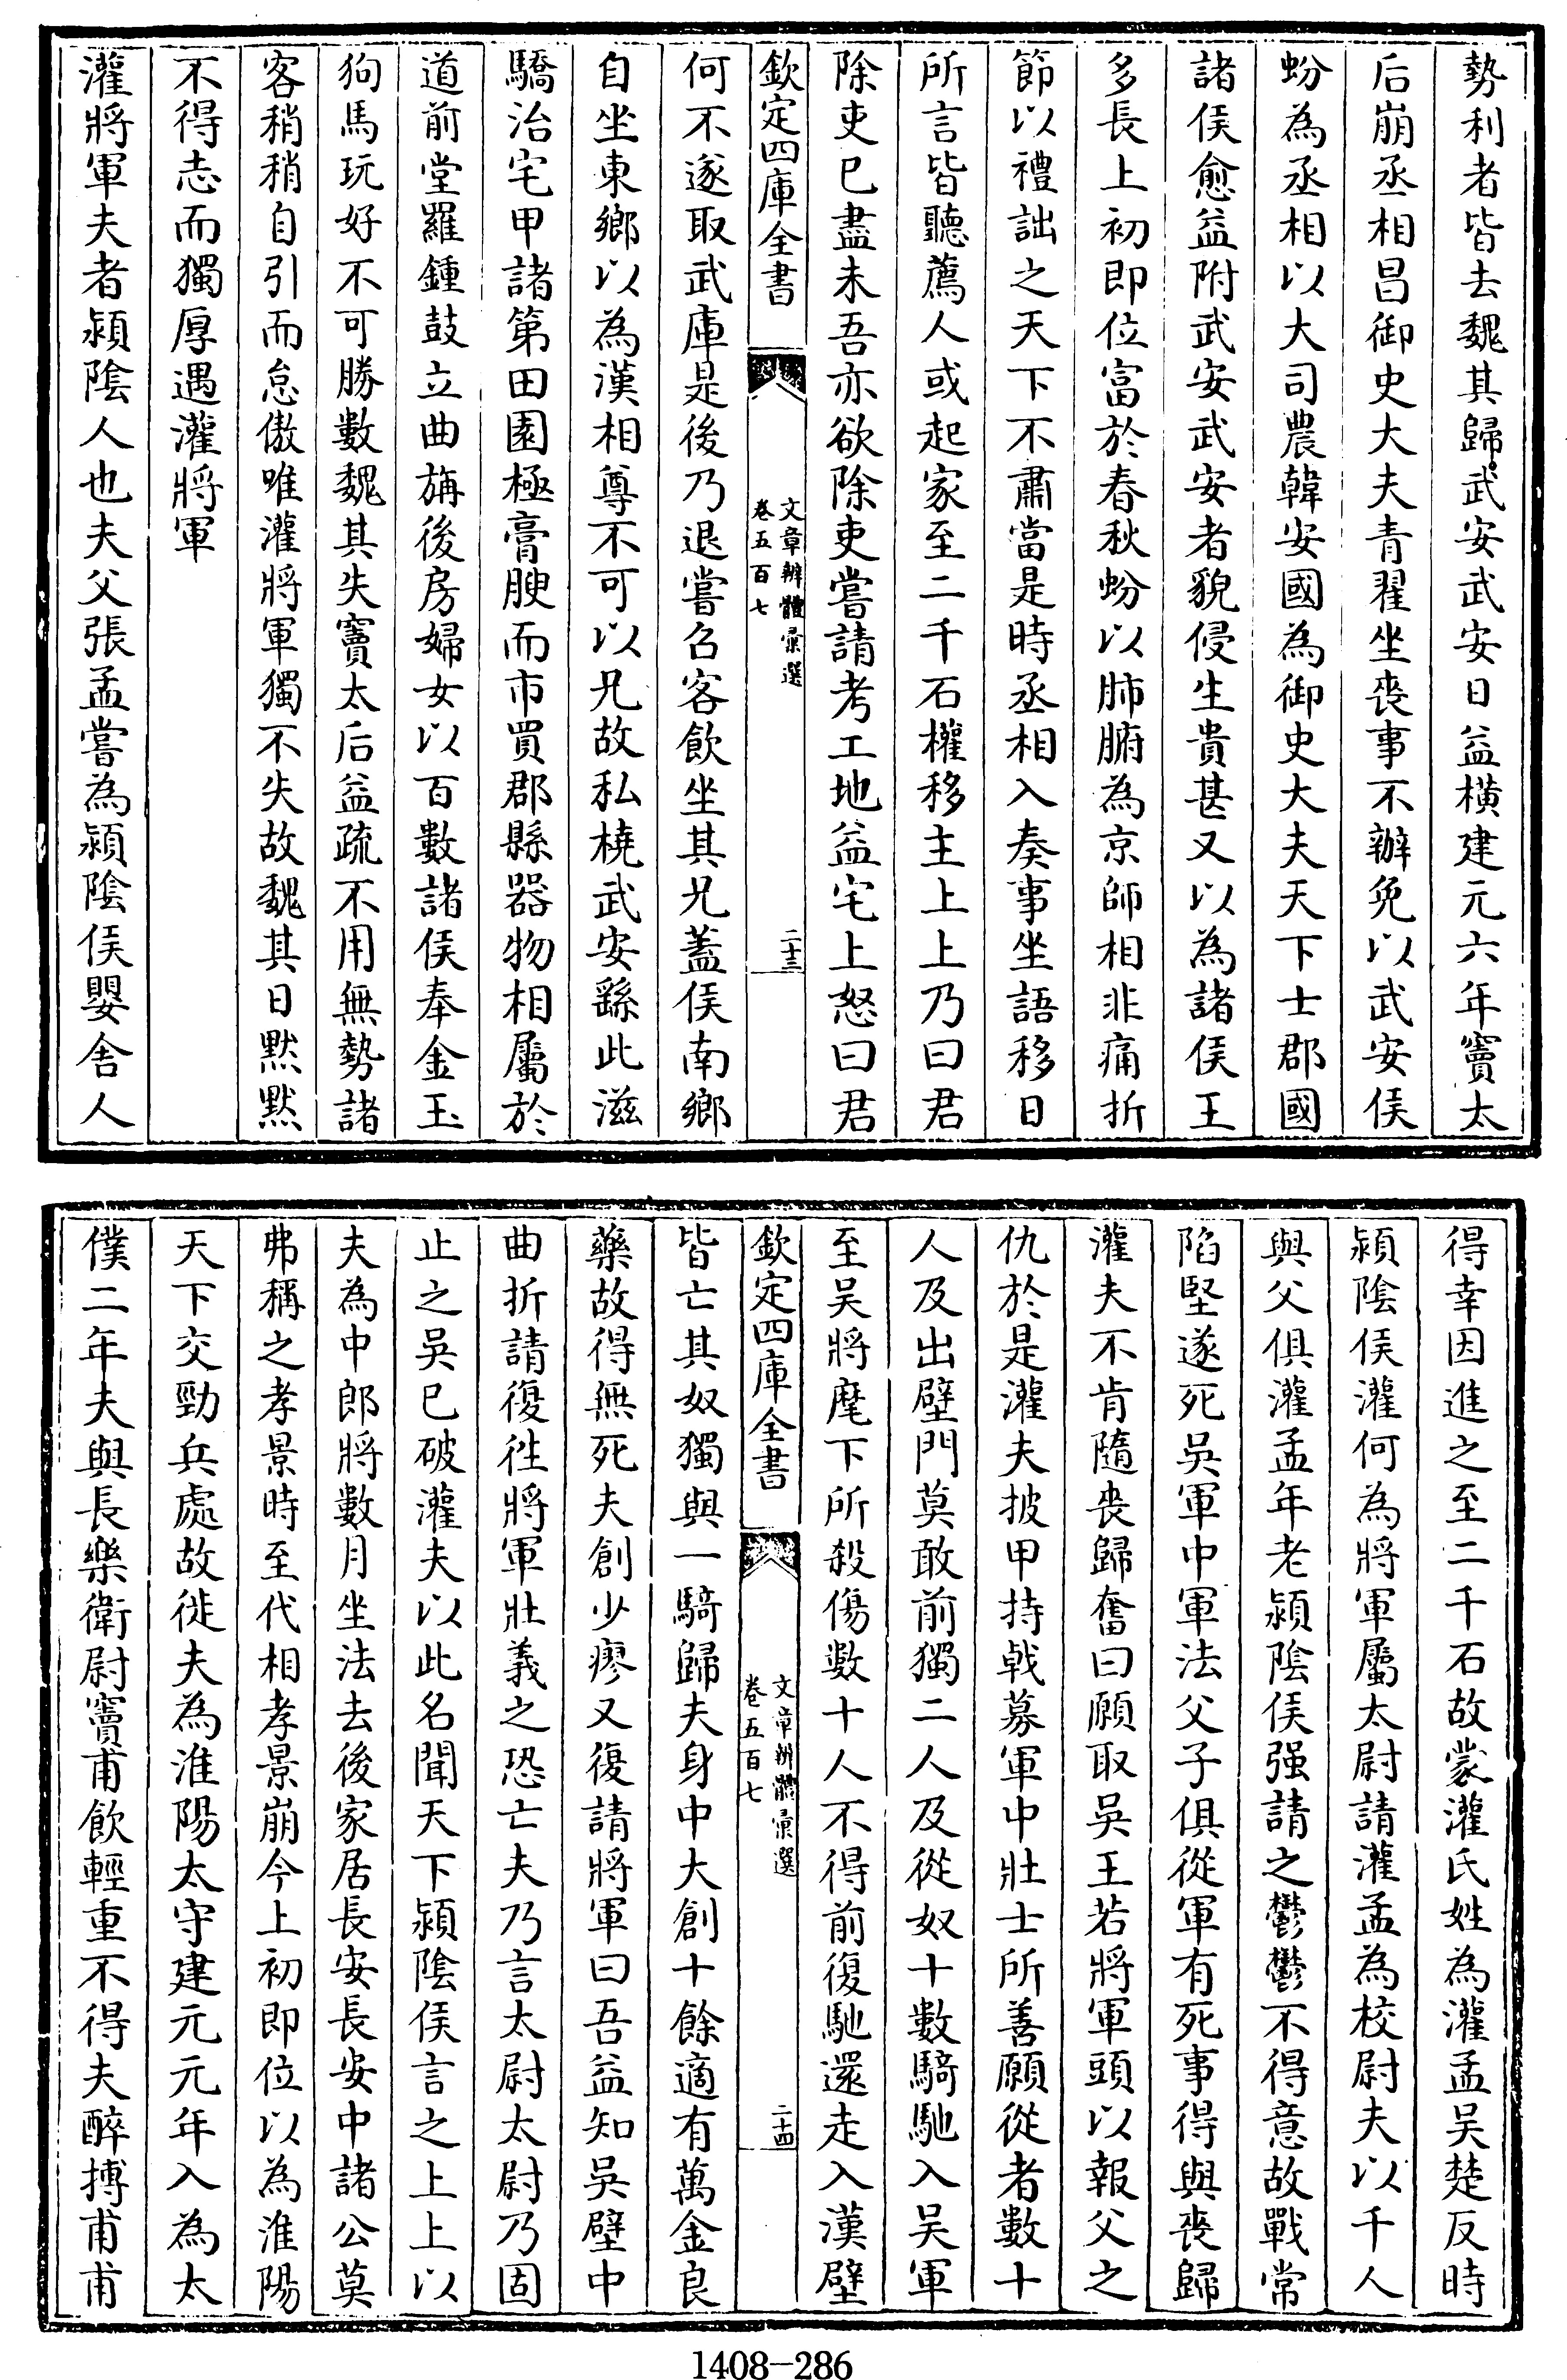 勢利者皆去魏其歸武安武安日益橫建元六年竇太
后崩丞相昌御史大夫青翟坐喪事不辦免以武安侯
蚡為丞相以大司農韓安國為御史大夫天下士郡國
諸侯愈益附武安武安者貌侵生貴甚又以為諸侯王
多長上初即位富於春秋蚡以肺腑為京師相非痛折
節以禮詘之天下不肅當是時丞相入奏事坐語移日
所言皆聽薦人或起家至二千石權移主上上乃曰君
除吏已盡未吾亦欲除吏嘗請考工地益宅上怒曰君
欽定四庫全書
文章辨體彙選
卷五百七
二十三
何不遂取武庫是後乃退嘗召客飲坐其兄蓋侯南鄉
自坐東鄉以為漢相尊不可以兄故私橈武安繇此滋
驕治宅甲諸第田園極膏腴而市買郡縣器物相屬於
道前堂羅鍾鼓立曲旃後房婦女以百數諸侯奉金玉
狗馬玩好不可勝數魏其失竇太后益疏不用無勢諸
客稍稍自引而怠傲唯灌將軍獨不失故魏其日默默
不得志而獨厚遇灌將軍
灌將軍夫者潁陰人也夫父張孟嘗為潁陰侯嬰舍人
得幸因進之至二千石故蒙灌氏姓為灌孟吳楚反時
潁陰侯灌何為將軍屬太尉請灌孟為校尉夫以千人
與父俱灌孟年老潁陰侯强請之鬱鬱不得意故戰常
陷堅遂死吳軍中軍法父子俱從軍有死事得與喪歸
灌夫不肯隨喪歸奮曰願取吳王若將軍頭以報父之
仇於是灌夫披甲持戟募軍中壯士所善願從者數十
人及出壁門莫敢前獨二人及從奴十數騎馳入吳軍
至吳將麾下所殺傷數十人不得前復馳還走入漢壁
欽定四庫全書
文章辨體彙選
卷五百七
二十四
皆亡其奴獨與一騎歸夫身中大創十餘適有萬金良
藥故得無死夫創少瘳又復請將軍曰吾益知吳壁中
曲折請復徃將軍壯義之恐亡夫乃言太尉太尉乃固
止之吳已破灌夫以此名聞天下潁陰侯言之上上以
夫為中郎將數月坐法去後家居長安長安中諸公莫
弗稱之孝景時至代相孝景崩今上初即位以為淮陽
天下交勁兵處故徙夫為淮陽太守建元元年入為太
僕二年夫與長樂衛尉竇甫飲輕重不得夫醉搏甫甫
1408-286